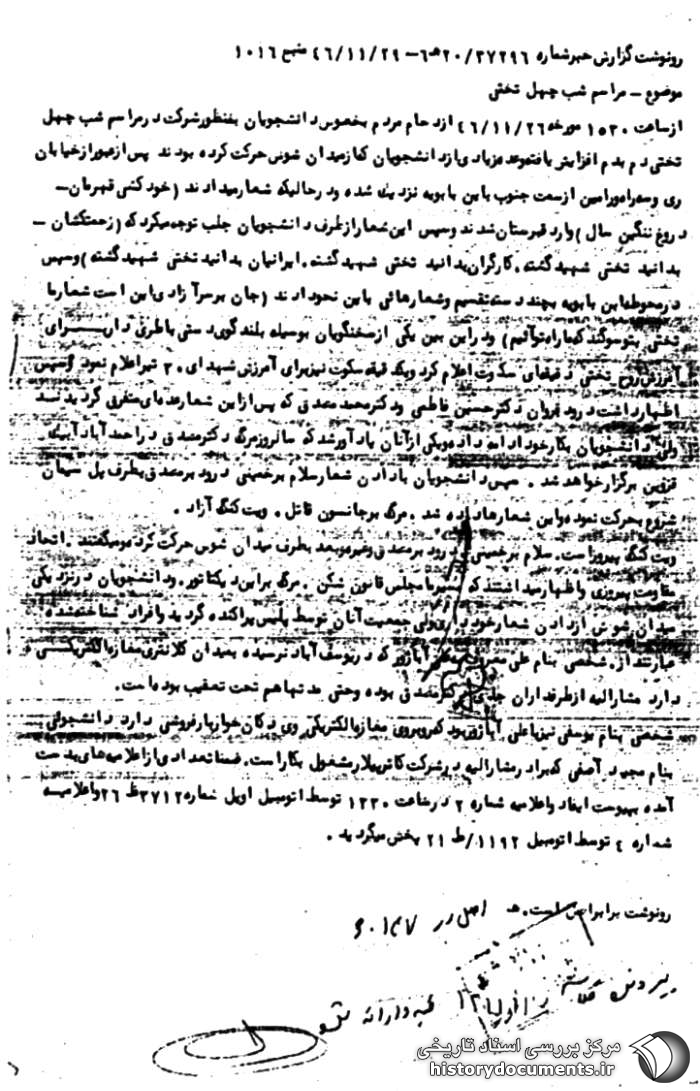 رونوشت گزارش خبر شماره ۲۰/۳۷۲۹۶ھ۶ – ۴۶/۱۱/۲۹ منبع ۱۰۱۶
موضوع – مراسم شب چهل تختی
از ساعت ۱۵۳۰ مورخه ۴۶/۱۱/۲۶ ازدحام مردم بخصوص دانشجویان بمنظور شرکت در مراسم شب چهل
تختی دم بدم افزایش یافته و عده زیادی از دانشجویان که از میدان شوش حرکت کرده بودند پس از عبور از خیابان
ری و سه راه ورامین از سمت جنوب باین بابویه نزدیک شده و در حالیکه شعار میدادند (خودکشی قهرمان –
دروغ ننگین سال) وارد قبرستان شدند و سپس این شعار از طرف دانشجویان جلب توجه میکرد که (زحمتکشان –
بدانید تختی شهید گشته . کارگران بدانید تختی شهید گشته . ایرانیان بدانید تختی شهید گشته) و سپس
در محوطه ابن بابویه بچند دسته تقسیم و شعارهائی باین نحو دادند (جان بر سر آزادی این است شعار ما
تختی بتو سوگند که ما راه تو آئیم) و در این بین یکی از سخنگویان بوسیله بلندگوی دستی باطری دار برای
آمرزش روح تختی دقیقه‌ای سکوت اعلام کرد و یکدقیقه سکوت نیز برای آمرزش شهدای ۳۰ تیر اعلام نمود و سپس
اظهار داشت درود بروان دکتر حسین فاطمی و دکتر محمد مصدق که پس از این شعار عده‌ای متفرق گردیدند
ولی دانشجویان بکار خود ادامه داده و یکی از آنان یادآور شد که سالروز مرگ دکتر مصدق در احمدآباد آبیک
قزوین برگزار خواهد شد . سپس دانشجویان با دادن شعار سلام بر خمینی درود بر مصدق بطرف پل سیمان
شروع بحرکت نموده و این شعارها داده شد . مرگ بر جانسون قاتل . ویت کنگ آزاد .
ویت کنگ پیروز است . سلام بر خمینی . درود بر مصدق و غیره و بعد بطرف میدان شوش حرکت کرده و میگفتند . اتحاد
مقاومت پیروزی و اظهار میداشتند که بر مجلس قانون شکن . مرگ بر این دیکتاتور . و دانشجویان در نزدیکی
میدان شوش از دادن شعار خودداری ولی جمعیت آنان توسط پلیس پراکنده گردید و افراد شناخته شده
عبارتند از . شخصی بنام علی آپازور که در یوسف آباد نرسیده بمیدان کلانتری مغازه الکتریکی
دارد مشارالیه از طرفداران جدی دکتر مصدق بوده و حتی مدتها هم تحت تعقیب بوده است .
شخصی بنام یوسفی نیز با علی آپازور بود که روبروی مغازه الکتریکی وی دکان خواربارفروشی دارد دانشجوئی
بنام مجید آصفی که برادر مشارالیه در شرکت کاترپیلار مشغول بکار است . ضمنا تعدادی از اعلامیه‌های بدست
آمده بپیوست ایفاد و اعلامیه شماره ۲ در ساعت ۱۳۳۰ توسط اتومبیل اوپل شماره ۳۷۱۲ ط ۲۶ و اعلامیه
شماره ۴ توسط اتومبیل ۱۱۹۲/ط ۲۱ پخش میگردید .
رونوشت برابر اصل است . ھ اصل در ۶۰۱۴۷
مرکز بررسی اسناد تاریخی
historydocuments.ir